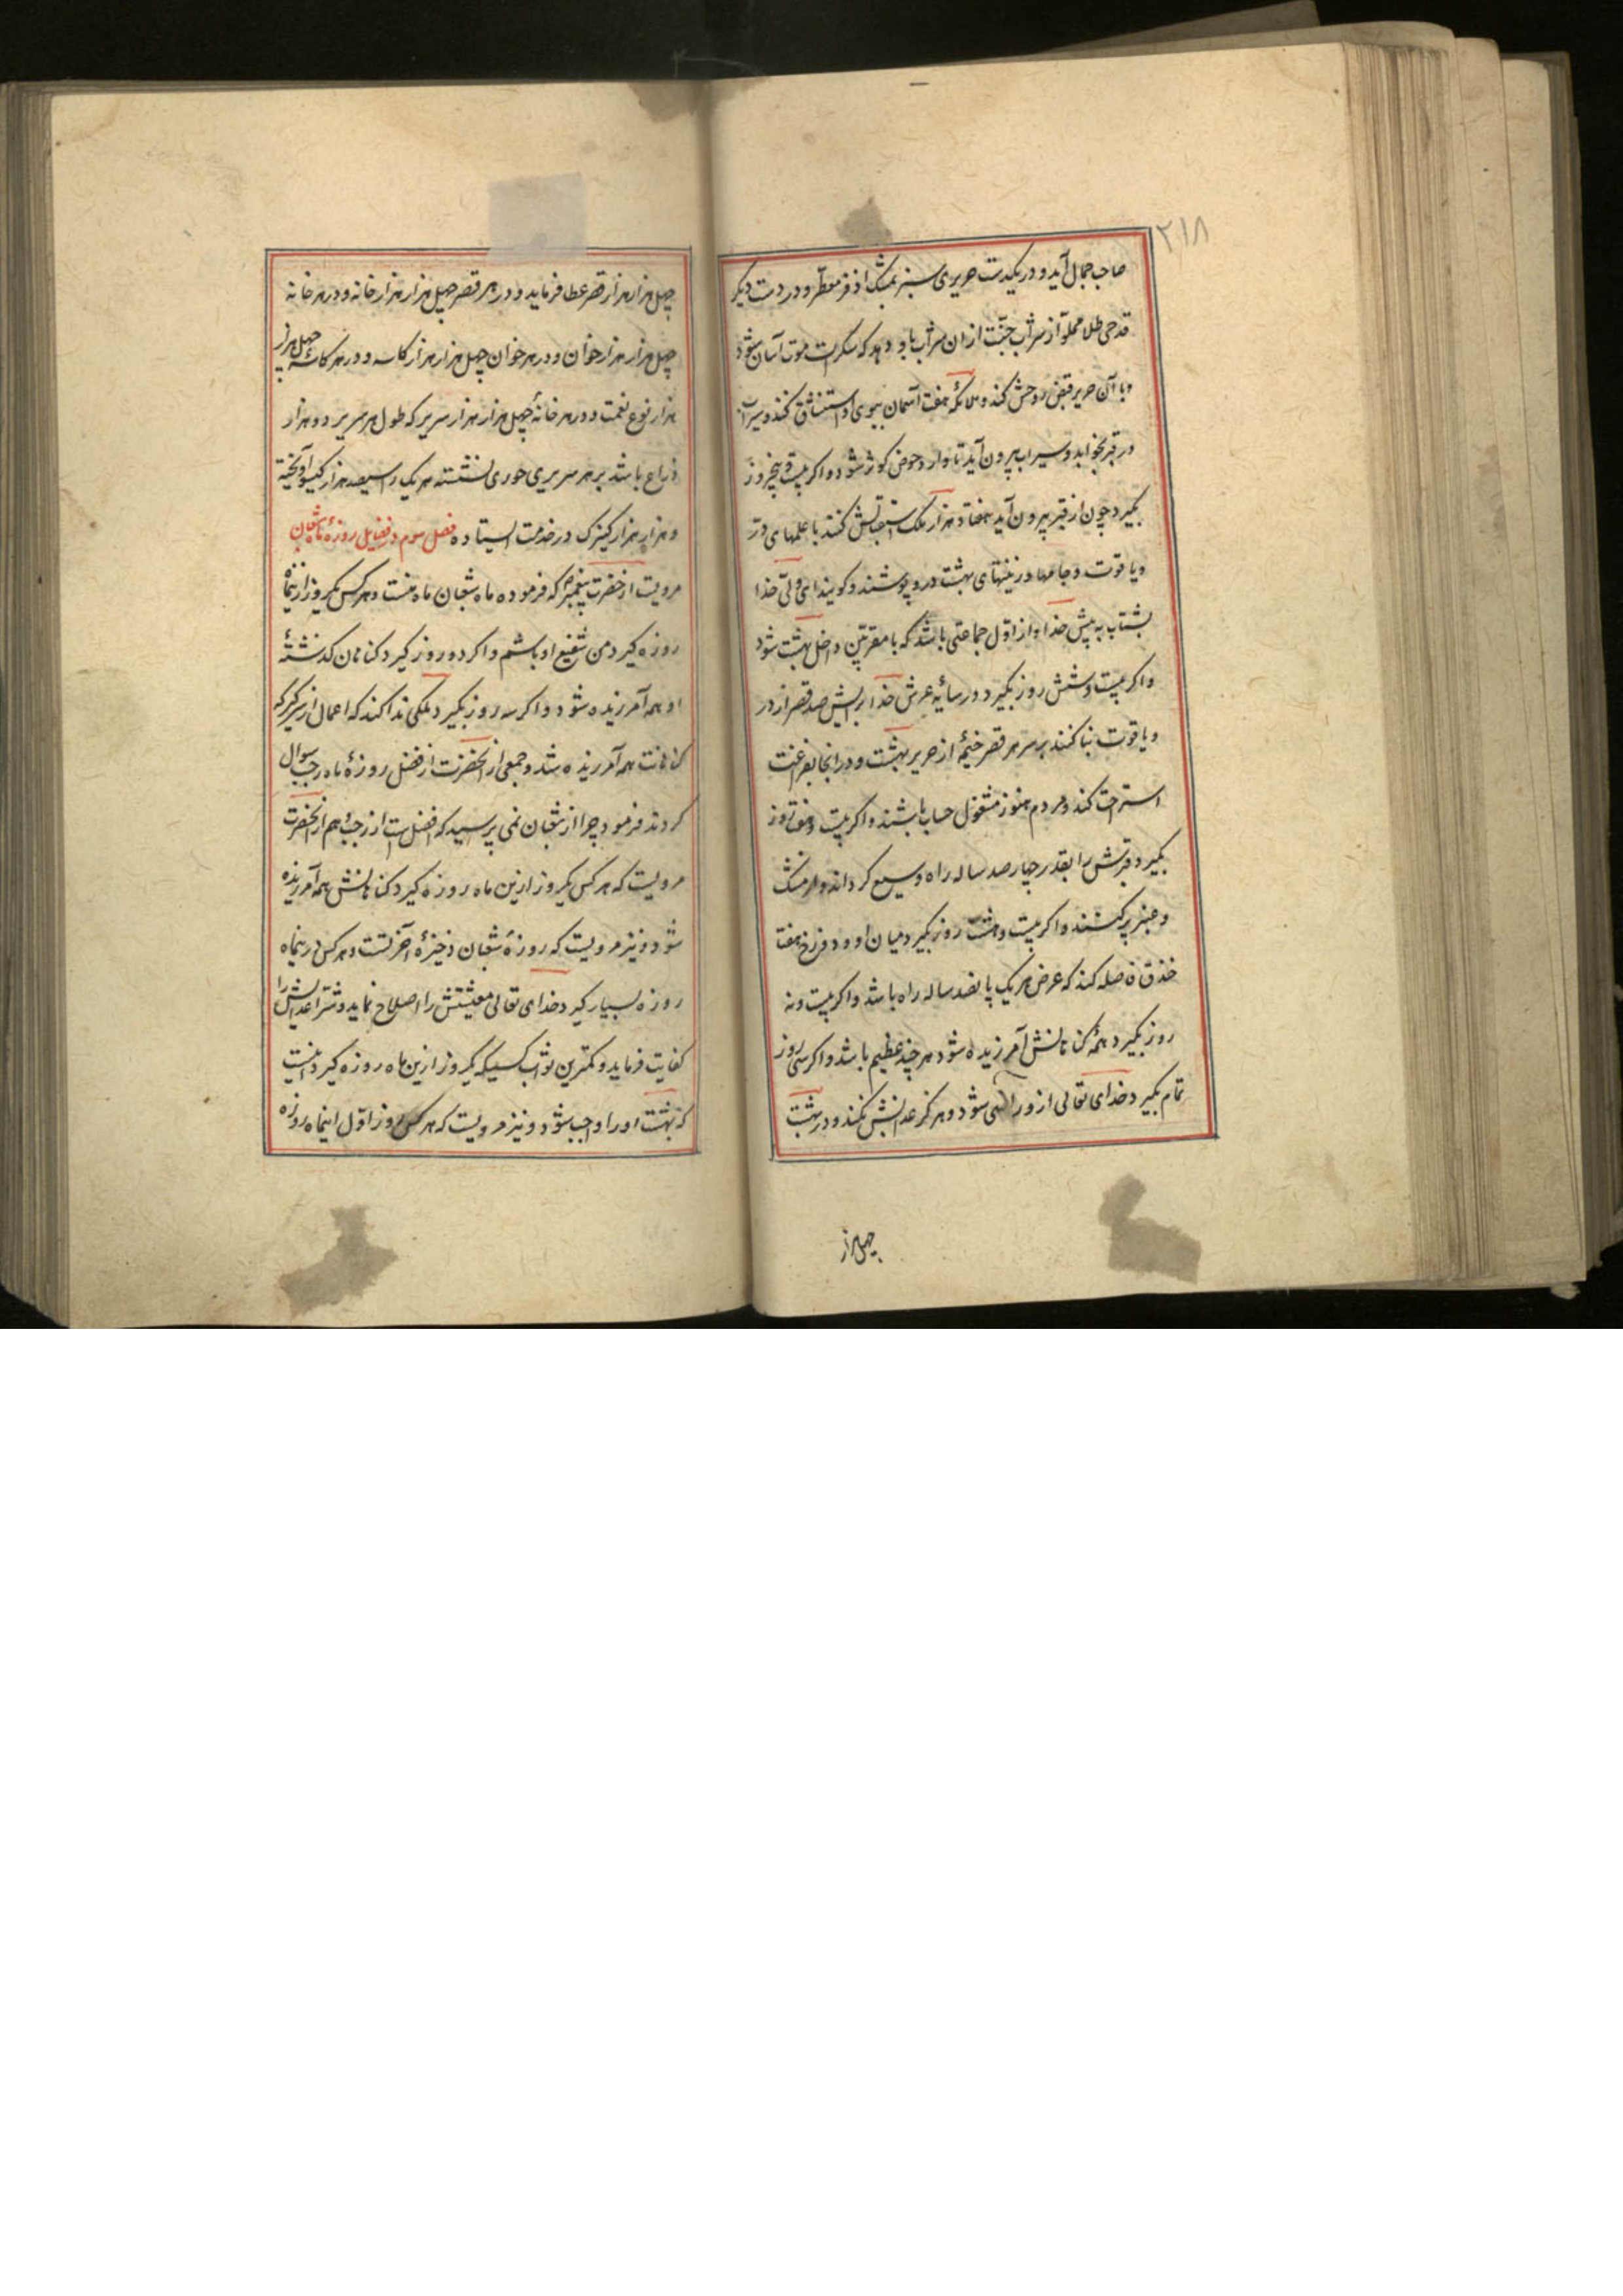 ۲۱۸
صاحب جمال آید و در یکدست حریری سبز بمشک اذفر معطّر و در دست دیگر
قدحی طلا مملوّ از شراب جنّت ازان شراب باو دهد که سکرات موت آسان شود
و با آن حریر قبض روحش کند و ملائکهٔ هفت آسمان ببوی او استنشاق کنند و سیراب
در قبر بخوابد و سیراب بیرون آید تا وارد حوض کوثر شود و اکر بیست و پنجروز
بکیرد چون از قبر بیرون آید هفتاد هزار ملک استقبالش کنند با علمهای درّ
و یاقوت و جامها و زینتهای بهشت درو پوشند و کویند ای ولیّ خدا
بشتاب به پیش خدا و از اوّل جماعتی باشد که با مقربین داخل بهشت شود
و اکر بیست و شش روز بکیرد در سایهٔ عرش خدا برایش صد قصر از در
و یاقوت بنا کنند بر سر هر قصر خیمهٔ از حریر بهشت و در انجا بفراغت
استراحت کند و مردم هنوز مشغول حساب باشند و اکر بیست و هفت روز
بکیرد قبرش را بقدر چهار صد ساله راه وسیع کرداند و از مشک
و عنبر پر کنند و اکر بیست و هشت روز بکیرد میان او و دوزخ هفت
خندق فاصله کند که عرض هر یک پانصد ساله راه باشد و اکر بیست و نه
روز بکیرد همهٔ کناهانش آمرزیده شود هر چند عظیم باشد و اکر سی روز
تمام بکیرد خدای تعالی ازو راضی شود و هرکز عذابش نکند و در بهشت
چهل هزار
چهل هزار هزار قصر عطا فرماید و در هر قصر چهل هزار هزار خانه و در هر خانه
چهل هزار هزار خوان و در هر خوان چهل هزار هزار کاسه و در هر کاسه چهل هزار
هزار نوع نعمت و در هر خانهٔ چهل هزار هزار سریر که طول هر سریر دو هزار
ذراع باشد بر هر سریری حوری نشسته هر یک را سیصد هزار کیسو آویخته
و هزار هزار کنیزک در خدمت ایستاده فصل سوم در فضایل روزهٔ ماه شعبان
مرویست از حضرت پیغمبر که فرموده ماه شعبان ماه منست و هر کس یکروز از ینماه
روزه کیرد من شفیع او باشم و اکر دو روز کیرد کناهان کذشتهٔ
او همه آمرزیده شود و اکر سه روز بکیرد ملکی ندا کند که اعمال از سر کیر که
کناهانت همه آمرزیده شد و جمعی از انحضرت از فضل روزهٔ ماه رجب سوال
کردند فرمود چرا از شعبان نمی پرسید که افضل است از رجب و هم از انحضرت
مرویست که هر کس یکروز ازین ماه روزه کیرد کناهانش همه آمرزیده
شود و نیز مرویست که روزهٔ شعبان ذخیرهٔ آخرتست و هر کس درینماه
روزه بسیار کیرد خدای تعالی معیشتش را اصلاح نماید و شر اعدایش را
کفایت فرماید و کمترین ثواب کسیکه یکروز ازین ماه روزه کیرد آنست
که بهشت او را واجب شود و نیز مرویست که هر کس روز اوّل اینماه روزه